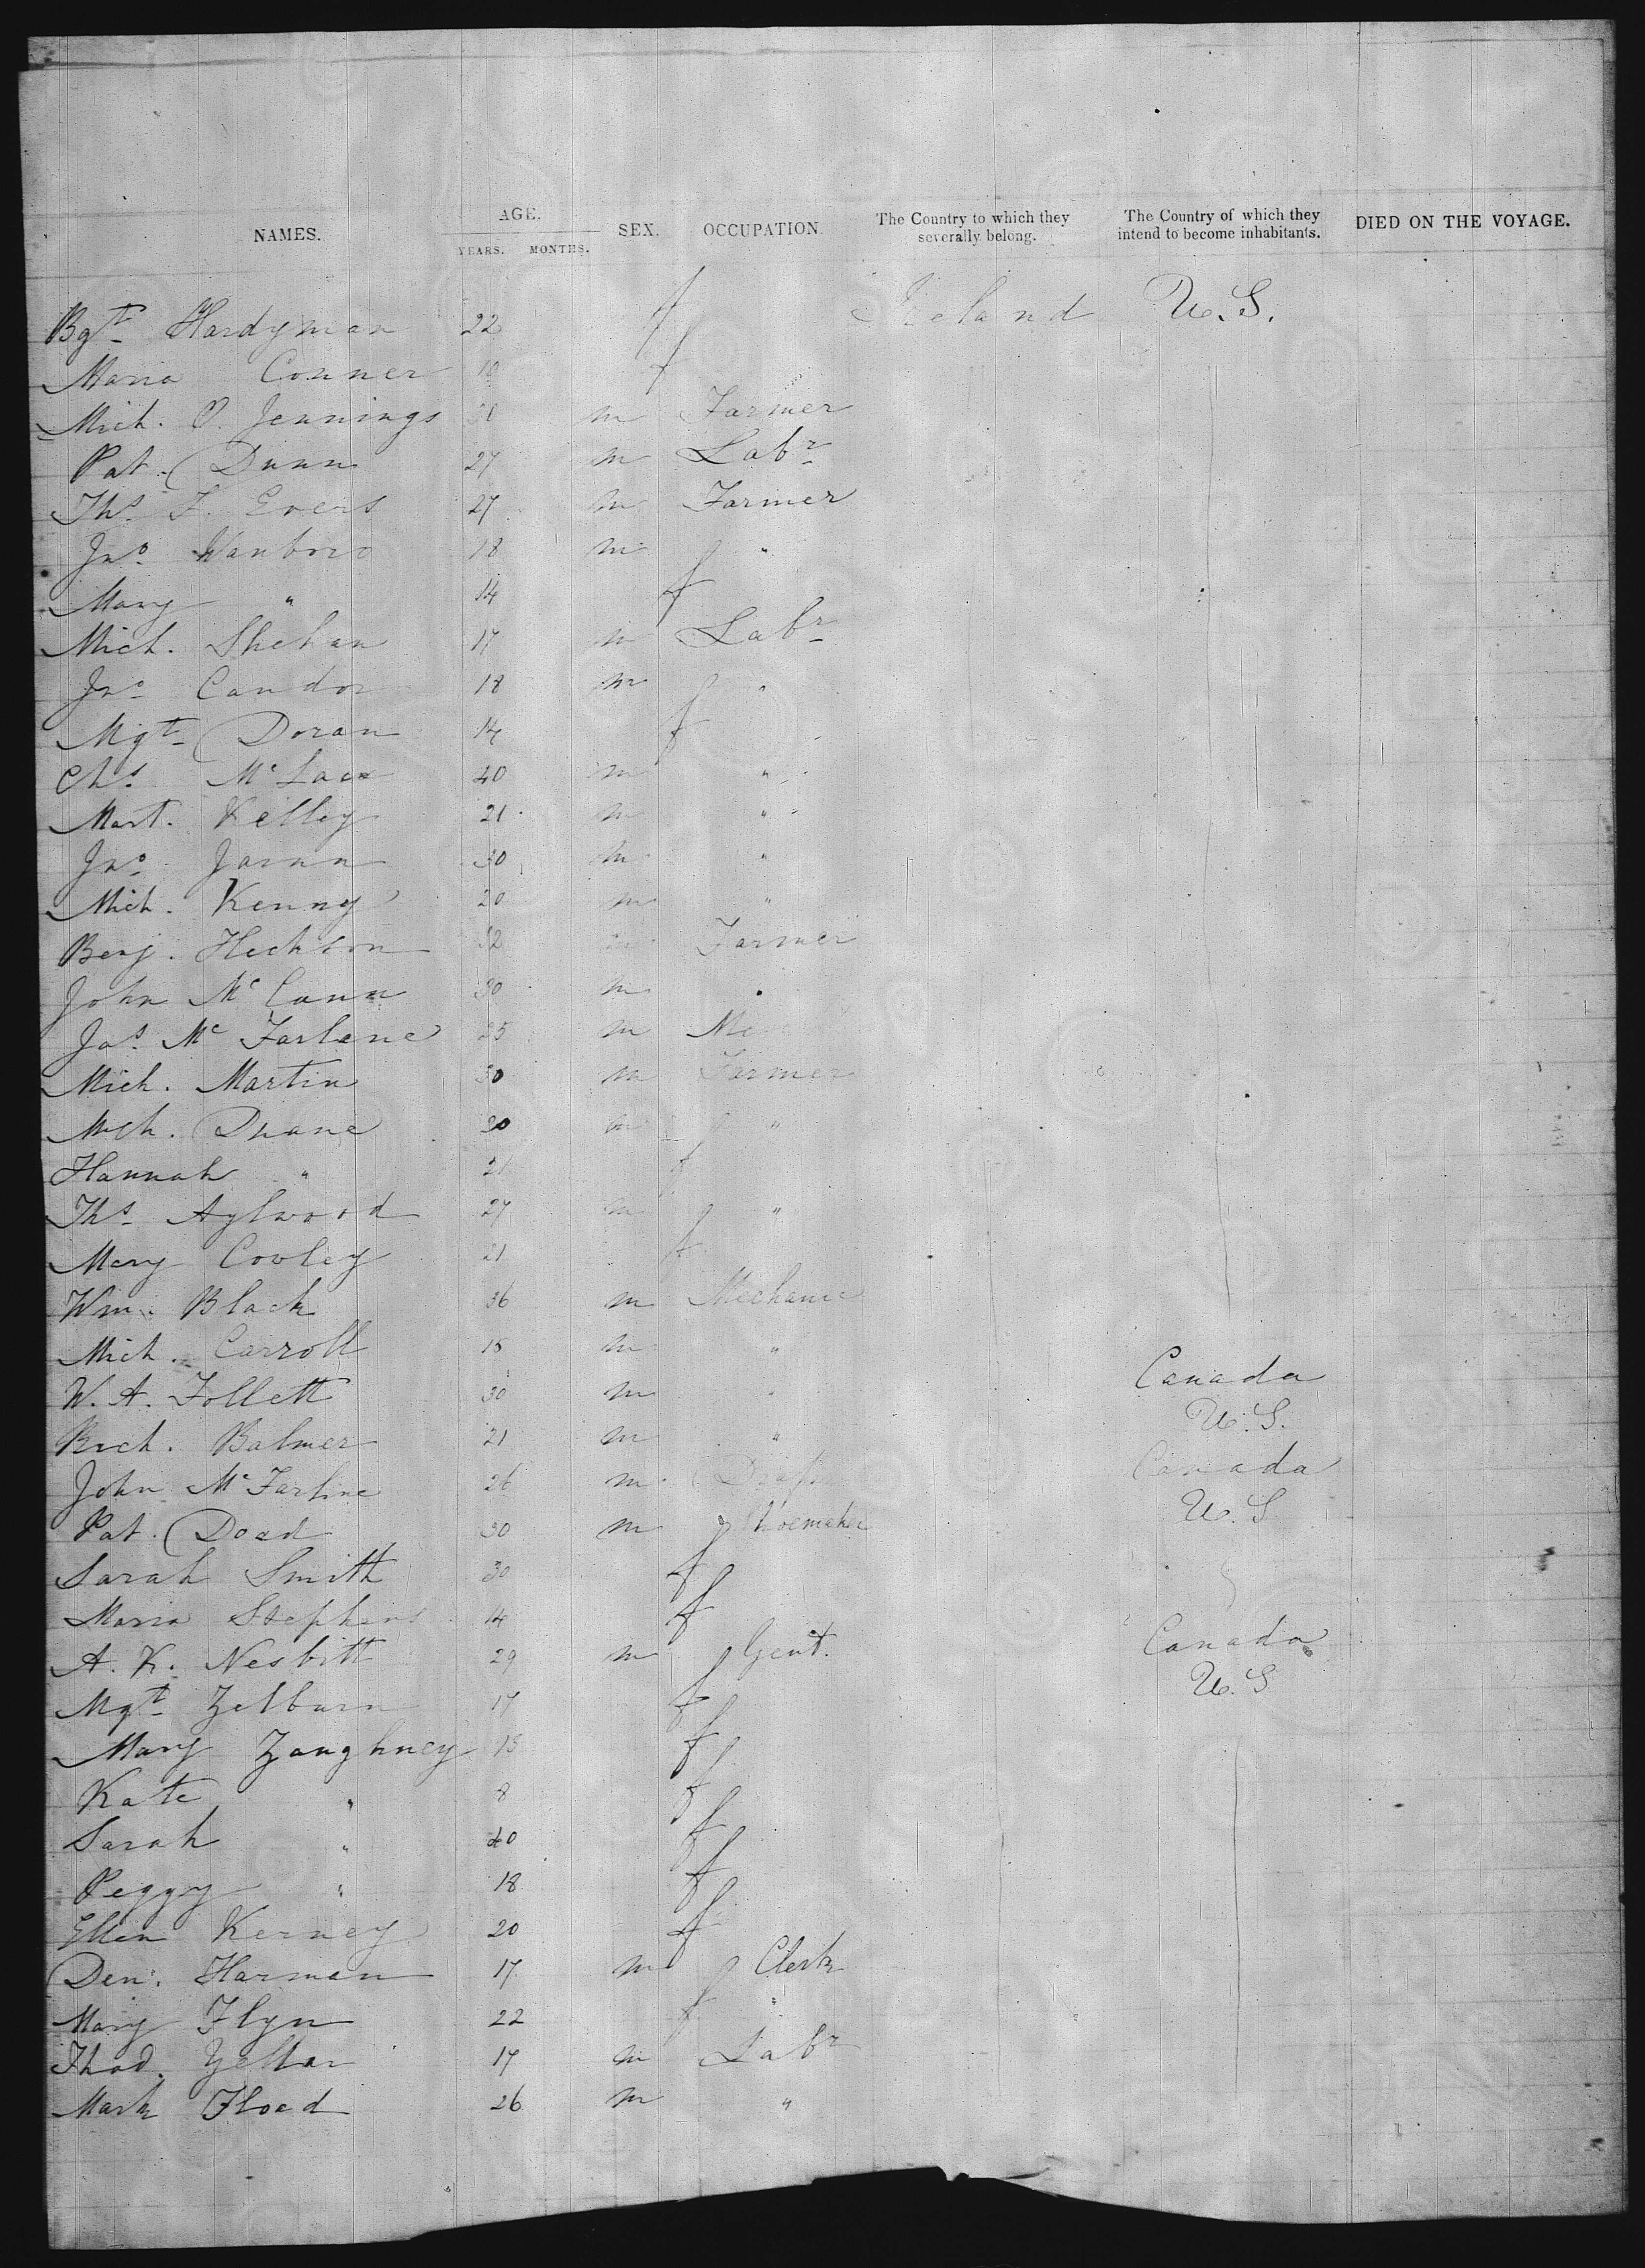 NAMES. AGE. YEARS. MONTHS. SEX. OCCUPATION. The Country to which they severally belong. The Country of which they intend to become inhabitants. DIED ON THE VOYAGE.
Bgt. Hardyman 22 f Ireland U.S.
Maria Conner 10 f
Mich. O. Jennings m Farmer
Pat. Dunn 27 m Labr
Ths. F. Evers 27 m Farmer
Jno. Wanboro 18 m "
Mary " 14 f
Mich. Shehan 17 m Labr
Jno. Candor 18 m "
Mgt. Doran 14 f
Chs. 40 m "
Mart. Kelley 21 m "
Jno. 30 m "
Mich. Kenny 20 m "
Benj. Heckson 32 m Farmer
John McCann 30 m
Jas. McFarlane 25 m
Mich. Martin 30 m Farmer
Mich. Duane 30 m "
Hannah " 21 f
Ths. Aylwood 27 m "
Mary Cooley 21 f
Wm. Black 36 m Mechanic
Mich. Carroll 18 m "
W. A. Follett 30 m " Canada
Rich. Balmer 21 m " U.S.
John McFarline 26 m Canada
Pat. Doad 30 m Shoemaker U.S
Sarah Smith 30 f
Maria Stephens 14 f
A. K. Nesbitt 29 m Gent. Canada
Mgt. Zelburn 17 f U.S
Mary Zaughney 13 f
Kate " 8 f
Sarah " 40 f
Peggy " 18 f
Ellen Kerney 20 f
Den. Harman 17 m Clerk
Mary Flyn 22 f "
Thad. 17 m Labr
Mark Floed 26 m "